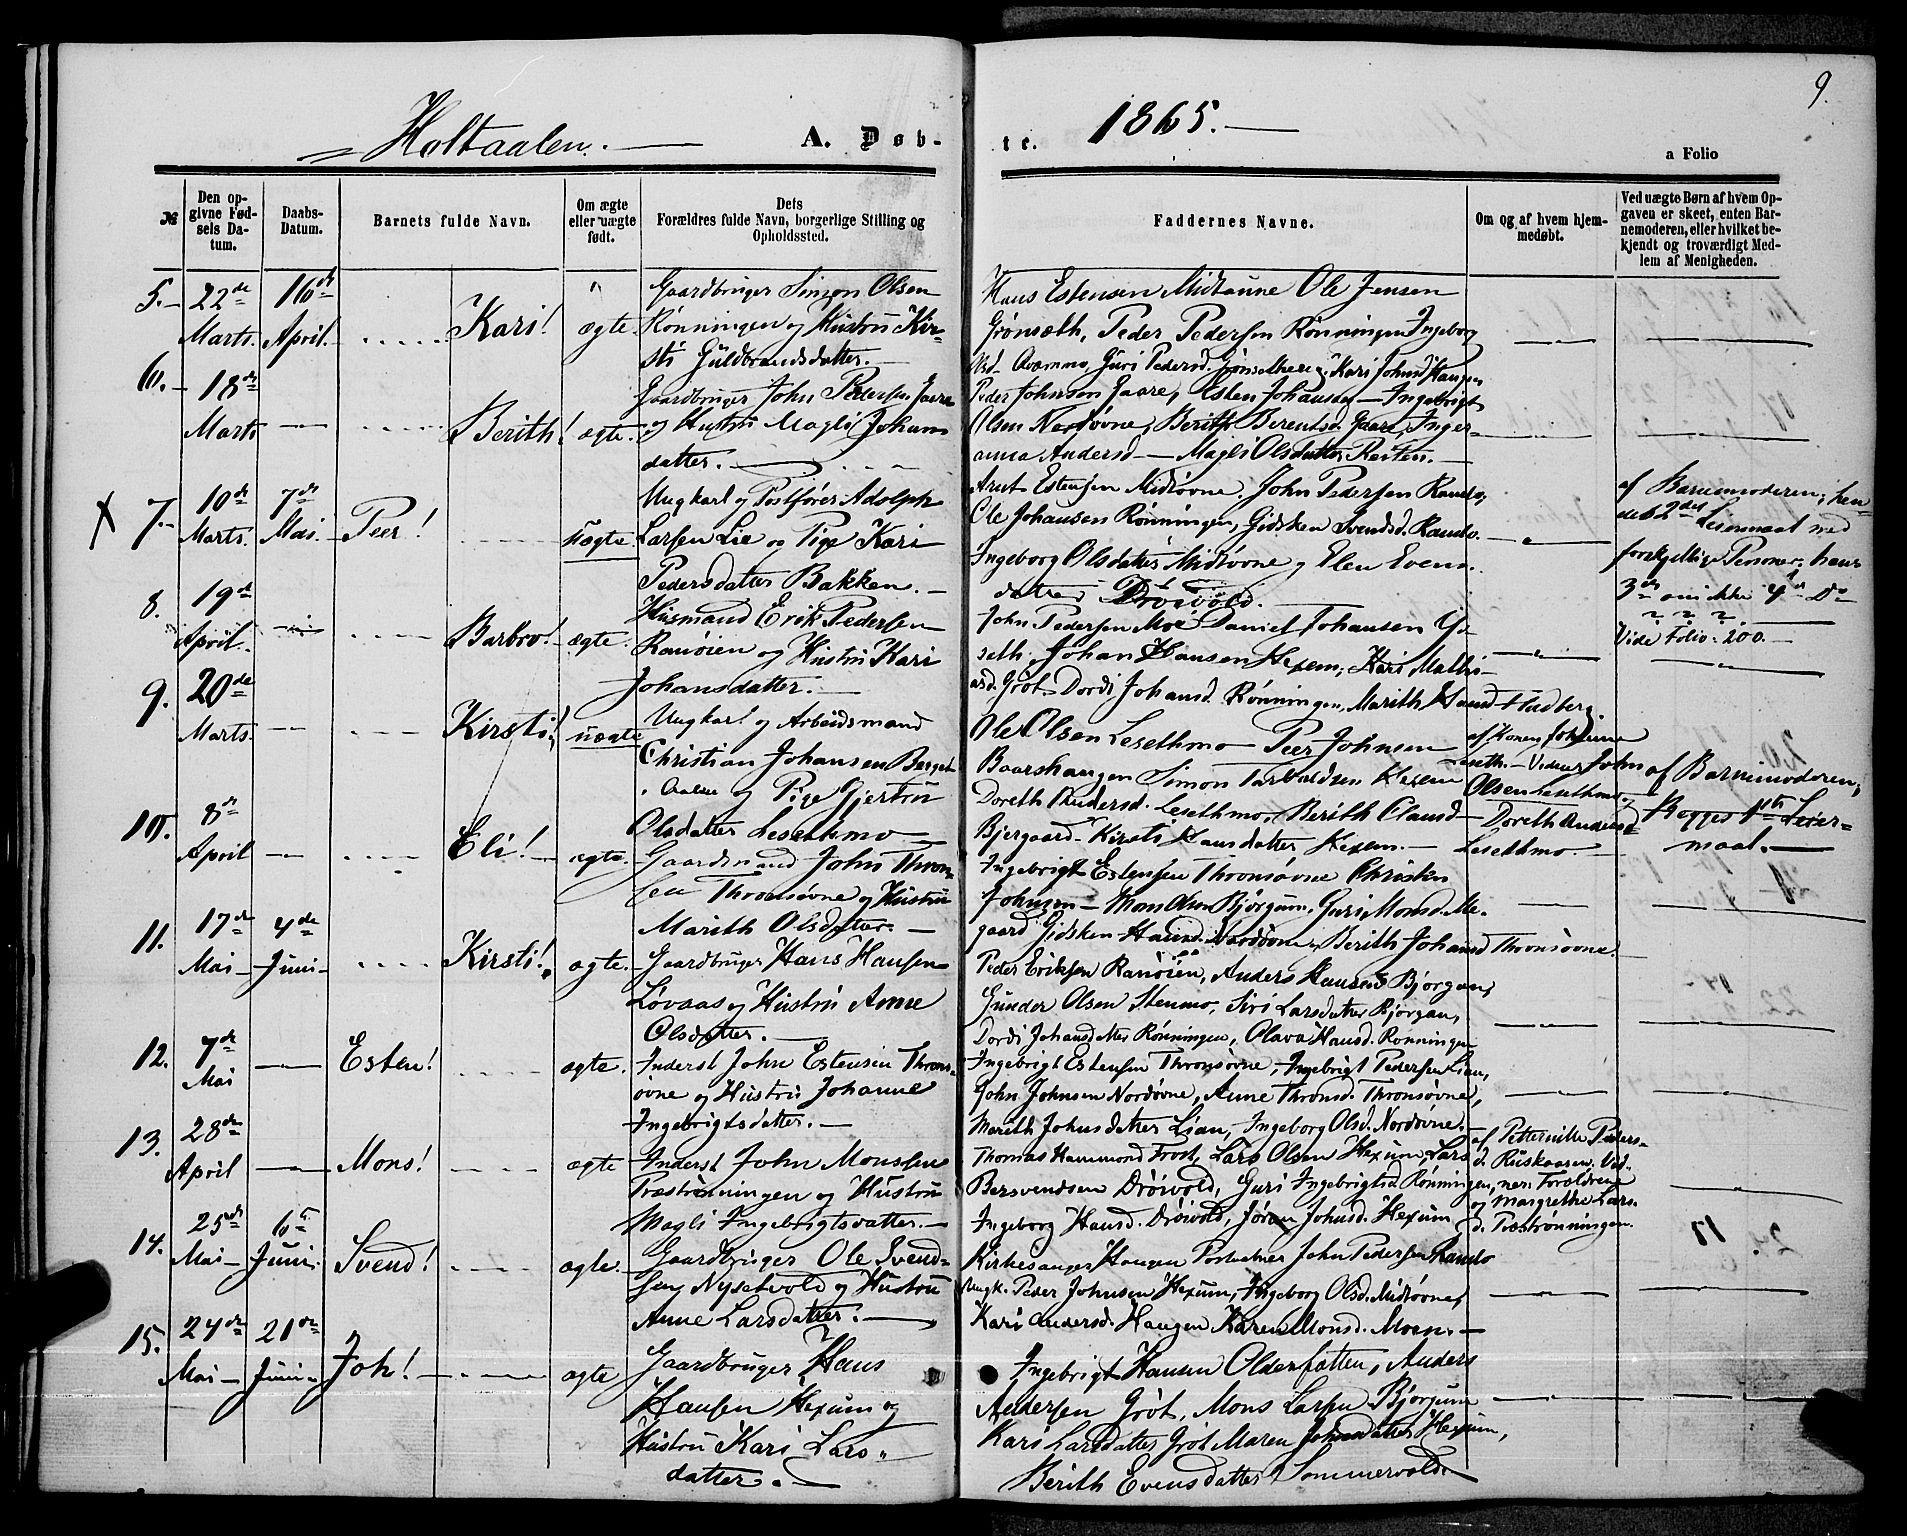 9.
Holtaalen.
A. Døb-
te.
1865.
a Folio
№
Den op-
givne Fød-
sels Da-
tum.
Daabs-
Datum.
Barnets fulde Navn.
Om ægte
eller uægte
født.
Dets
Forældres fulde Navn, borgerlige Stilling og
Opholdssted.
Faddernes Navne.
Om og af hvem hjem-
medøbt.
Ved uægte Børn af hvem Op-
gaven er skeet, enten Bar-
nemoderen, eller hvilket be-
kjendt og troværdigt Med-
lem af Menigheden.
5. 22de Marts. 16de April. Kari! ægte.
Gaardbruger Simon Olsen
Rønningen og Hustru Kir-
sti Guldbrandsdatter.
Hans Estensen Midtaune Ole Jensen
Grønsæth, Peder Pedersen Rønningen Ingeborg
Guri Pedersd. Kari Johnsd Haugen
6. 18de Marts Berith! ægte.
Gaardbruger John Pedersen Gaare
og Hustru Magli Johans
datter.
Peder Johnsen Gaare, Esten Johansen - Ingebrigt
Olsen Nordøvne, Berith Berentsd. Gaare, Inger-
anna Andersd - Magli Olsdatter
X 7. 10de Marts. 7de Mai. Peer! Uægte
Ungkarl og Postfører Adolph
Larsen Lie og Pige Kari
Pedersdatter Bakken.
Arnt Estensen Midtøvne, John Pedersen Ramlo,
Ole Johansen Rønningen, Gidsken Svendsd. Ramlo.
Ingeborg Olsdatter Midtøvne og Elen Evens
datter Drøivold.
af Barnemoderen; hen-
des 2det Leiermaal med
forskjellige Personer; hans
3de om ikke 4de Do
Vide Folio: 200.
8. 19de April. Barbro! ægte.
Husmand Erik Pedersen
Ranøien og Hustru Kari
Johansdatter.
John Pedersen Moe Daniel Johansen
seth, Johan Hansen Hexem, Kari Mathi-
asd. Grøt Dordi Johansd. Rønningen, Marith Hansd Fladberg.
9. 20de Marts. Kirsti! uægte
Ungkarl og Arbeidsmand
Christian Johansen Berget
Aalen og Pige Gjertru
Olsdatter Lesethmo
Ole Olsen Lesethmo Peer Johnsen
Baarshaugen Simon Hexem
Doreth Andersd. Lesethmo, Berith Clausd
Bjergaard. Kirsti Hansdatter Hexem.
af Konen
Vidner John
Olsen Lesethmo,
Doreth Andersd
Lesethmo
af Barnemoderen;
Begges 1ste Leier-
maal.
10. 8de April Eli! ægte.
Gaardmand John Thron-
sen Thronsøvne og Hustru
Marith Olsdatter.
Ingebrigt Estensen Thronsøvne Christen
Johnsen - Mons Olsen Bjørgum. Guri Monsd. Me-
gaard Gidsken Hansd. Nordøvne, Berith Johansd Thronsøvne.
11. 17de Mai 4de Juni Kirsti! ægte.
Gaardbruger Hans Hansen
Løvaas og Hustru Anne
Olsdatter.
Peder Eriksen Ranøien, Anders Hansen Bjørgan,
Gunder Olsen Stenmo, Siri Larsdatter Bjørgan,
Dordi Johansdatter Rønningen, Olava Hansd. Rønningen
12. 7de Mai Esten! ægte.
Inderst John Estensen Throns-
øvne og Hustru Johanne
Ingebrigtsdatter.
Ingebrigt Estensen Thronsøvne, Ingebrigt Pedersen Lian,
John Johnsen Nordøvne, Anne Thronsd. Thronsøvne,
Marith Johnsdatter Lian, Ingeborg Olsd. Nordøvne.
13. 28de April Mons! ægte
Inderst John Monssen
Træetrønningen og Hustru
Magli Ingebrigtsdatter.
Thomas Hammond Frost, Lars Olsen Hexum, Lars
Bersvendsen Drøivold, Guri Ingebrigtsd. Rønningen,
Ingeborg Hansd. Drøivold, Jøran Johnsd. Hexum
af Petternille Peders-
d. Ruskaasen. Vid-
ner: Forældrene
og Margrethe Lars-
d. Træetrønningen.
14. 25de Mai 6te Juni Svend! ægte.
Gaardbruger Ole Svend-
sen Nysetvold og Hustru
Anne Larsdatter.
Kirkesanger Haugen John Pedersen Ramlo
Ungk. Peder Johnsen Hexum, Ingeborg Olsd. Midtøvne,
Kari Andersd. Haugen Karen Monsd. Moen.
15. 24de Mai 21de Juni Joh! ægte
Gaardbruger Hans
Hansen Hexum og
Hustru Kari Lars-
datter.
Ingebrigt Hansen Olderfatten, Anders
Andersen Grøt, Mons Larsen Bjørgum
Kari Larsdatter Grøt Maren Johnsdatter Hexum,
Berith Evensdatter Sommervold.